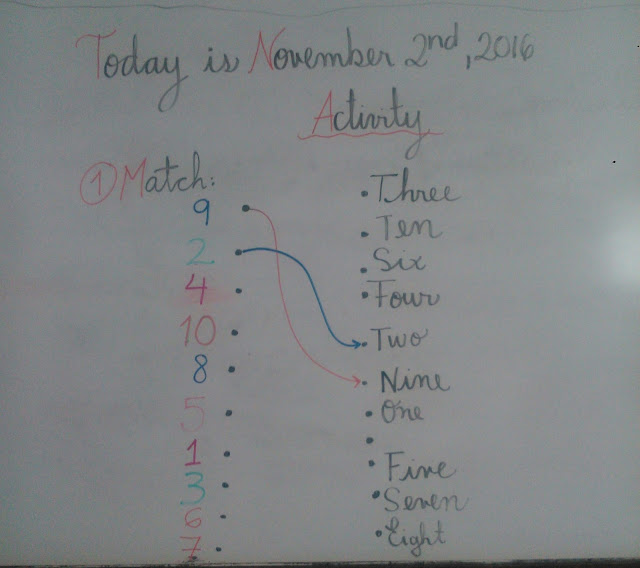 Today is November 2nd, 2016
Activity
① Match:
9 • • Three
2 • • Ten
4 • • Six
10 • • Four
8 • • Two
5 • • Nine
1 • • One
3 • •
6 • • Five
7 • • Seven
• Eight